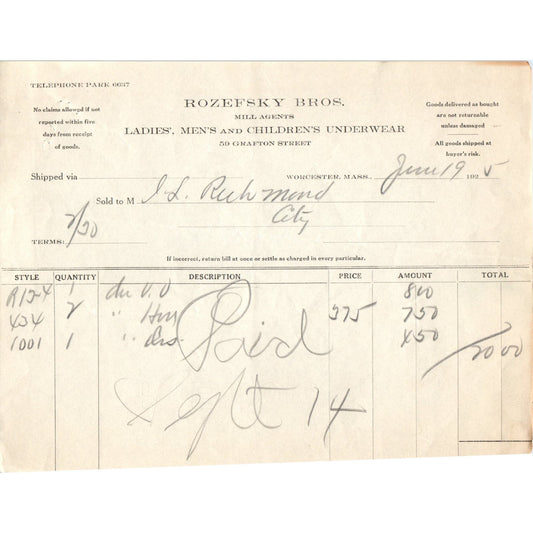 TELEPHONE PARK 6637
No claims allowed if not
reported within five
days from receipt
of goods.
ROZEFSKY BROS.
MILL AGENTS
LADIES', MEN'S AND CHILDREN'S UNDERWEAR
59 GRAFTON STREET
Goods delivered as bought
are not returnable
unless damaged
All goods shipped at
buyer's risk.
Shipped via
WORCESTER, MASS., June 19 1925
Sold to M J. L. Richmond
City
TERMS: 2/30
If incorrect, return bill at once or settle as charged in every particular.
STYLE QUANTITY DESCRIPTION PRICE AMOUNT TOTAL
R12-4 1 800
434 2 " 375 750
1001 1 " 450
2000
Paid
Sept 14